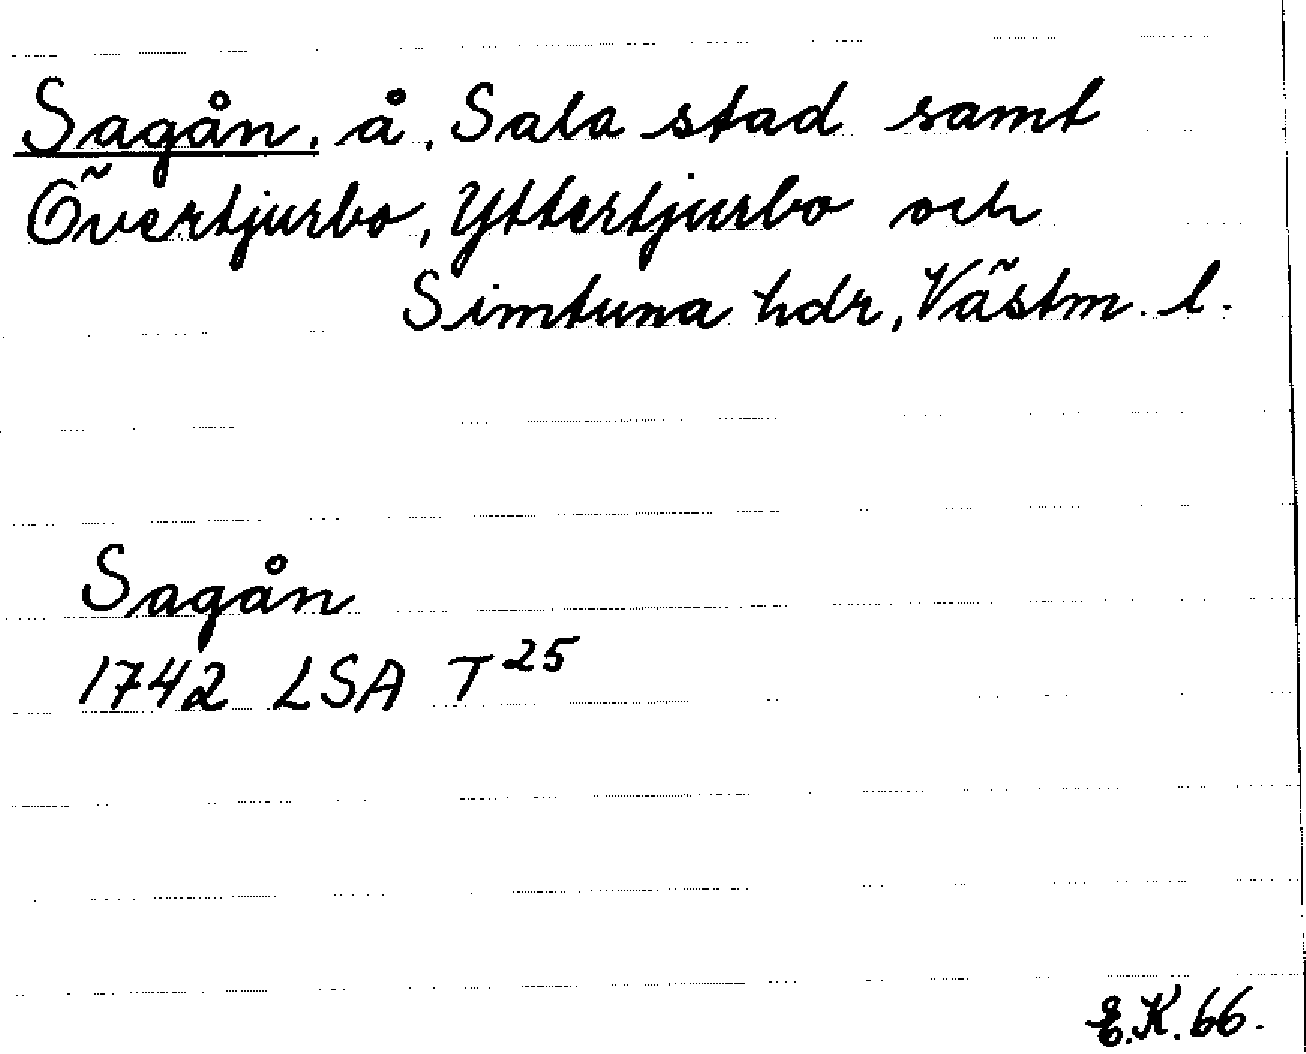 Sagån, å, Sala stad samt
Övertjurbo, Yttertjurbo och
Simtuna hdr, Västm. l.
Sagån
1742 LSA T 25
E.K. 66.